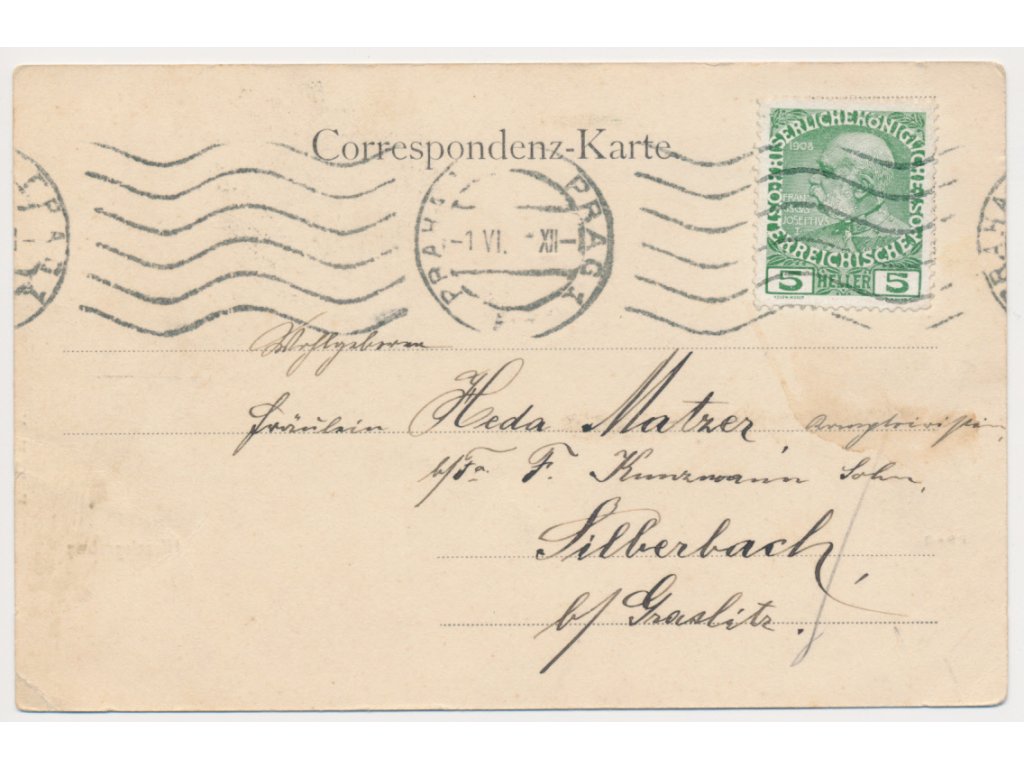 Correspondenz-Karte
KAISERLICHE KÖNIGLICHE ÖSTERREICHISCHE POST
1908
FRAN
JOSEFI
5 HELLER 5
PRAHA PRAG
-1 VI. XII-
PRAG
PRAHA
Wohlgeboren
Fräulein Heda Matzer,
b/Fa. F. Kunzmann Sohn,
Silberbach,
b/ Graslitz.